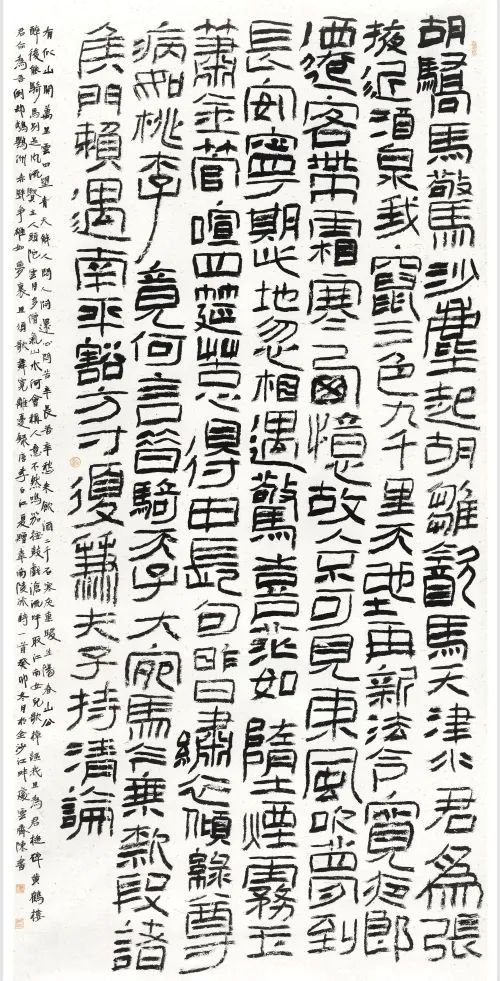 胡驕馬驚沙塵起胡雛飲馬天津水君為張
掖近酒泉我竄三巴九千里天地再新法令寬夜郎
遷客帶霜寒西憶故人不可見東風吹夢到
長安寧期此地忽相遇驚喜茫如墮煙霧玉
蕭金管喧四筵苦心不得申長句昨日繡衣傾綠尊
病如桃李竟何言昔騎天子大宛馬今乘款段諸
侯門賴遇南平豁方寸復兼夫子持清論
有似山開萬里雲四望青天解人悶人悶還心悶苦辛長苦辛愁來飲酒二千石寒灰重暖生陽春山公
醉後能騎馬別是風流賢主人頭陀雲月多僧氣山水何曾稱人意不然鳴笳按鼓戲滄流呼取江南女兒歌棹謳我且為君槌碎黃鶴樓
君亦為吾倒却鸚鵡洲赤壁爭雄如夢裏且須歌舞寬離憂錄唐李白江夏贈韋南陵冰詩一首癸卯冬月於金沙江畔雲齋陳